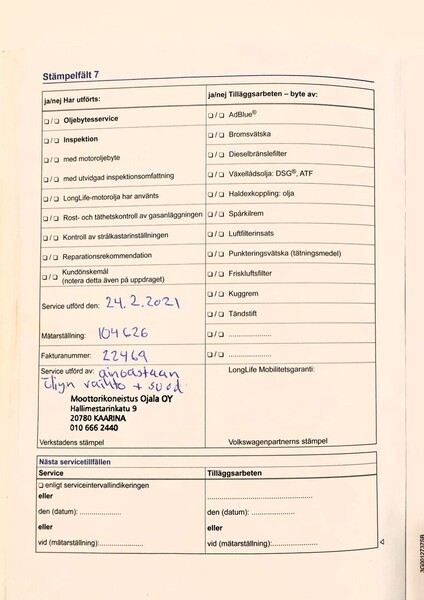 Stämpelfält 7
ja/nej Har utförts:
ja/nej Tilläggsarbeten – byte av:
/ Oljebytesservice
/ AdBlue®
/ Inspektion
/ Bromsvätska
/ med motoroljebyte
/ Dieselbränslefilter
/ med utvidgad inspektionsomfattning
/ Växellådsolja: DSG®, ATF
/ LongLife-motorolja har använts
/ Haldexkoppling: olja
/ Rost- och täthetskontroll av gasanläggningen
/ Spårkilrem
/ Kontroll av strålkastarinställningen
/ Luftfilterinsats
/ Reparationsrekommendation
/ Punkteringsvätska (tätningsmedel)
/ Kundönskemål
(notera detta även på uppdraget)
/ Friskluftsfilter
/ Kuggrem
Service utförd den: 24.2.2021
/ Tändstift
Mätarställning: 104626
/ ....................
Fakturanummer: 22469
/ ....................
Service utförd av: ainoastaan
LongLife Mobilitetsgaranti:
öljyn vaihto + suod.
Moottorikoneistus Ojala OY
Hallimestarinkatu 9
20780 KAARINA
010 666 2440
Verkstadens stämpel
Volkswagenpartnerns stämpel
Nästa servicetillfällen
Service
Tilläggsarbeten
enligt serviceintervallindikeringen
eller
den (datum): ....................
den (datum): ....................
eller
eller
vid (mätarställning):....................
vid (mätarställning):....................
3G0012737SB